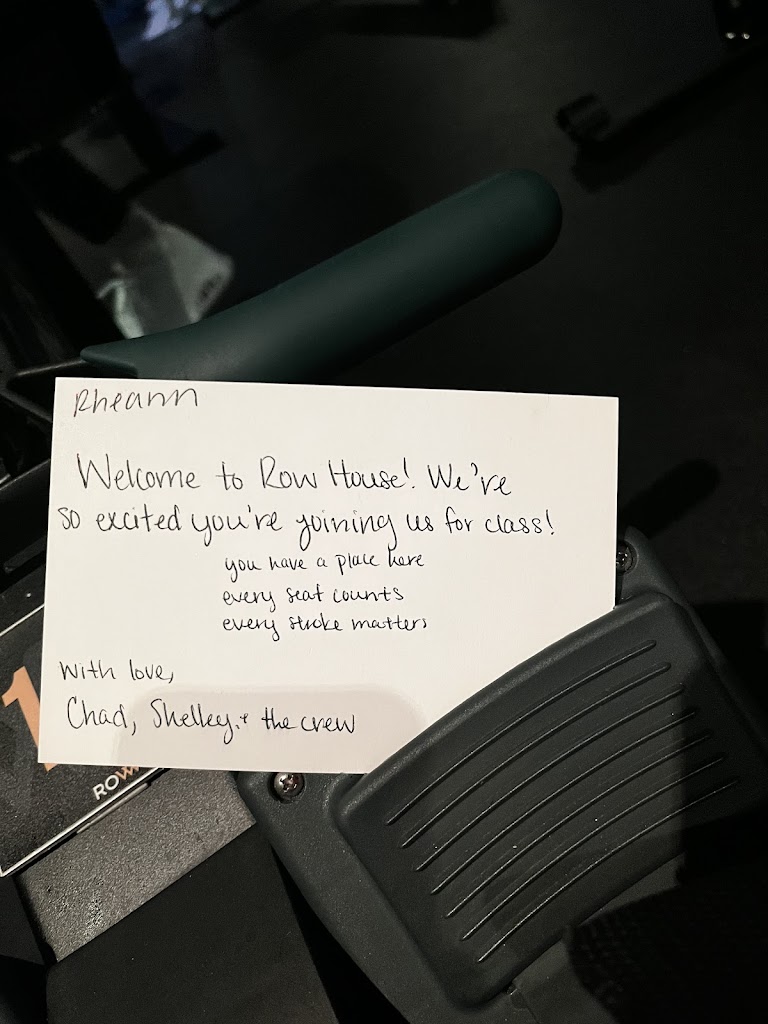 Rheann
Welcome to Row House! We're
so excited you're joining us for class!
you have a place here
every seat counts
every stroke matters
with love,
Chad, Shelley & the crew
1
ROW